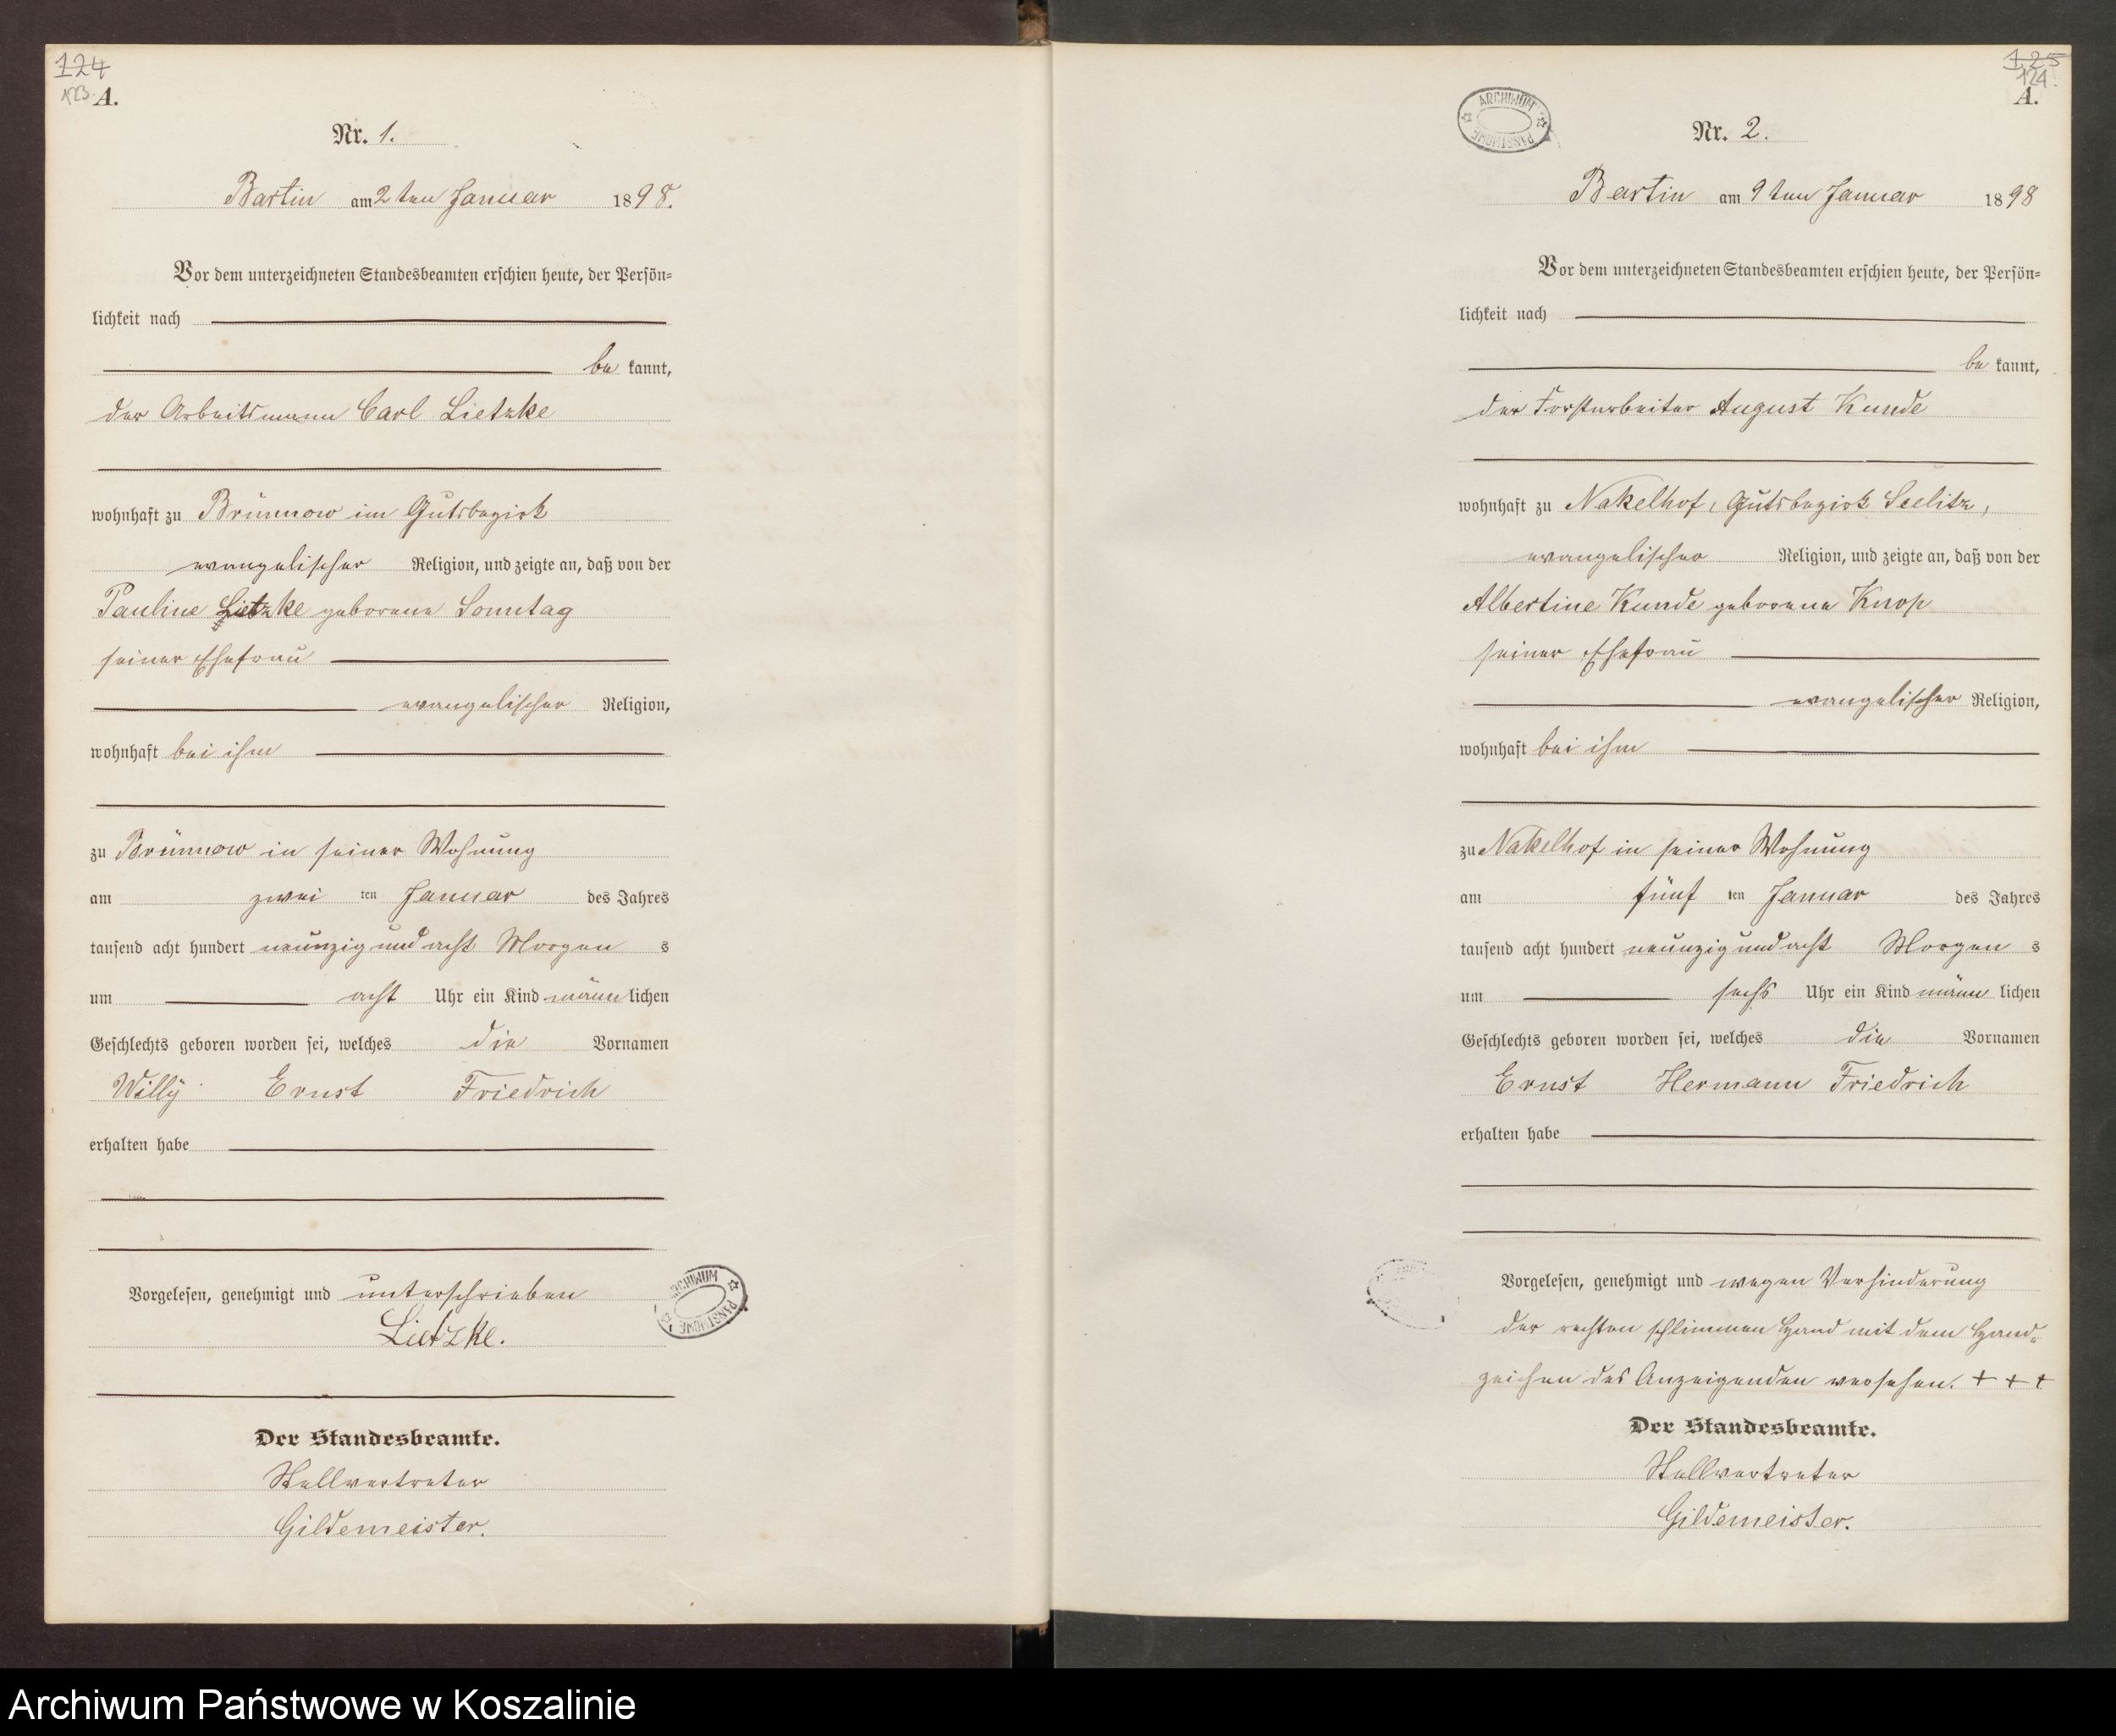 124
123. A.
Nr. 1.
Bartin am 2ten Januar 1898.
Vor dem unterzeichneten Standesbeamten erschien heute, der Persön=
lichkeit nach
be kannt,
der Arbeitsmann Carl Lietzke
wohnhaft zu Brünnow im Gutsbezirk
evangelischer Religion, und zeigte an, daß von der
Pauline Lietzke geborene Sonntag
seiner Ehefrau
evangelischer Religion,
wohnhaft bei ihm
zu Brünnow in seiner Wohnung
am zwei ten Januar des Jahres
tausend acht hundert neunzig und acht Morgen s
um acht Uhr ein Kind männ lichen
Geschlechts geboren worden sei, welches die Vornamen
Willy Ernst Friedrich
erhalten habe
Vorgelesen, genehmigt und unterschrieben
Lietzke.
ARCHIWUM PAŃSTWOWE
Der Standesbeamte.
Stellvertreter
Gildemeister.
125
124.
A.
ARCHIWUM PAŃSTWOWE
Nr. 2.
Bartin am 9ten Januar 1898
Vor dem unterzeichneten Standesbeamten erschien heute, der Persön=
lichkeit nach
be kannt,
der Forstarbeiter August Kunde
wohnhaft zu Nakelhof, Gutsbezirk Seelitz,
evangelischer Religion, und zeigte an, daß von der
Albertine Kunde geborene Knop
seiner Ehefrau
evangelischer Religion,
wohnhaft bei ihm
zu Nakelhof in seiner Wohnung
am fünf ten Januar des Jahres
tausend acht hundert neunzig und acht Morgen s
um sechs Uhr ein Kind männ lichen
Geschlechts geboren worden sei, welches die Vornamen
Ernst Hermann Friedrich
erhalten habe
Vorgelesen, genehmigt und wegen Verhinderung
der rechten schlimmen Hand mit dem Hand=
zeichen des Anzeigenden versehen. + + +
Der Standesbeamte.
Stellvertreter
Gildemeister.
Archiwum Państwowe w Koszalinie